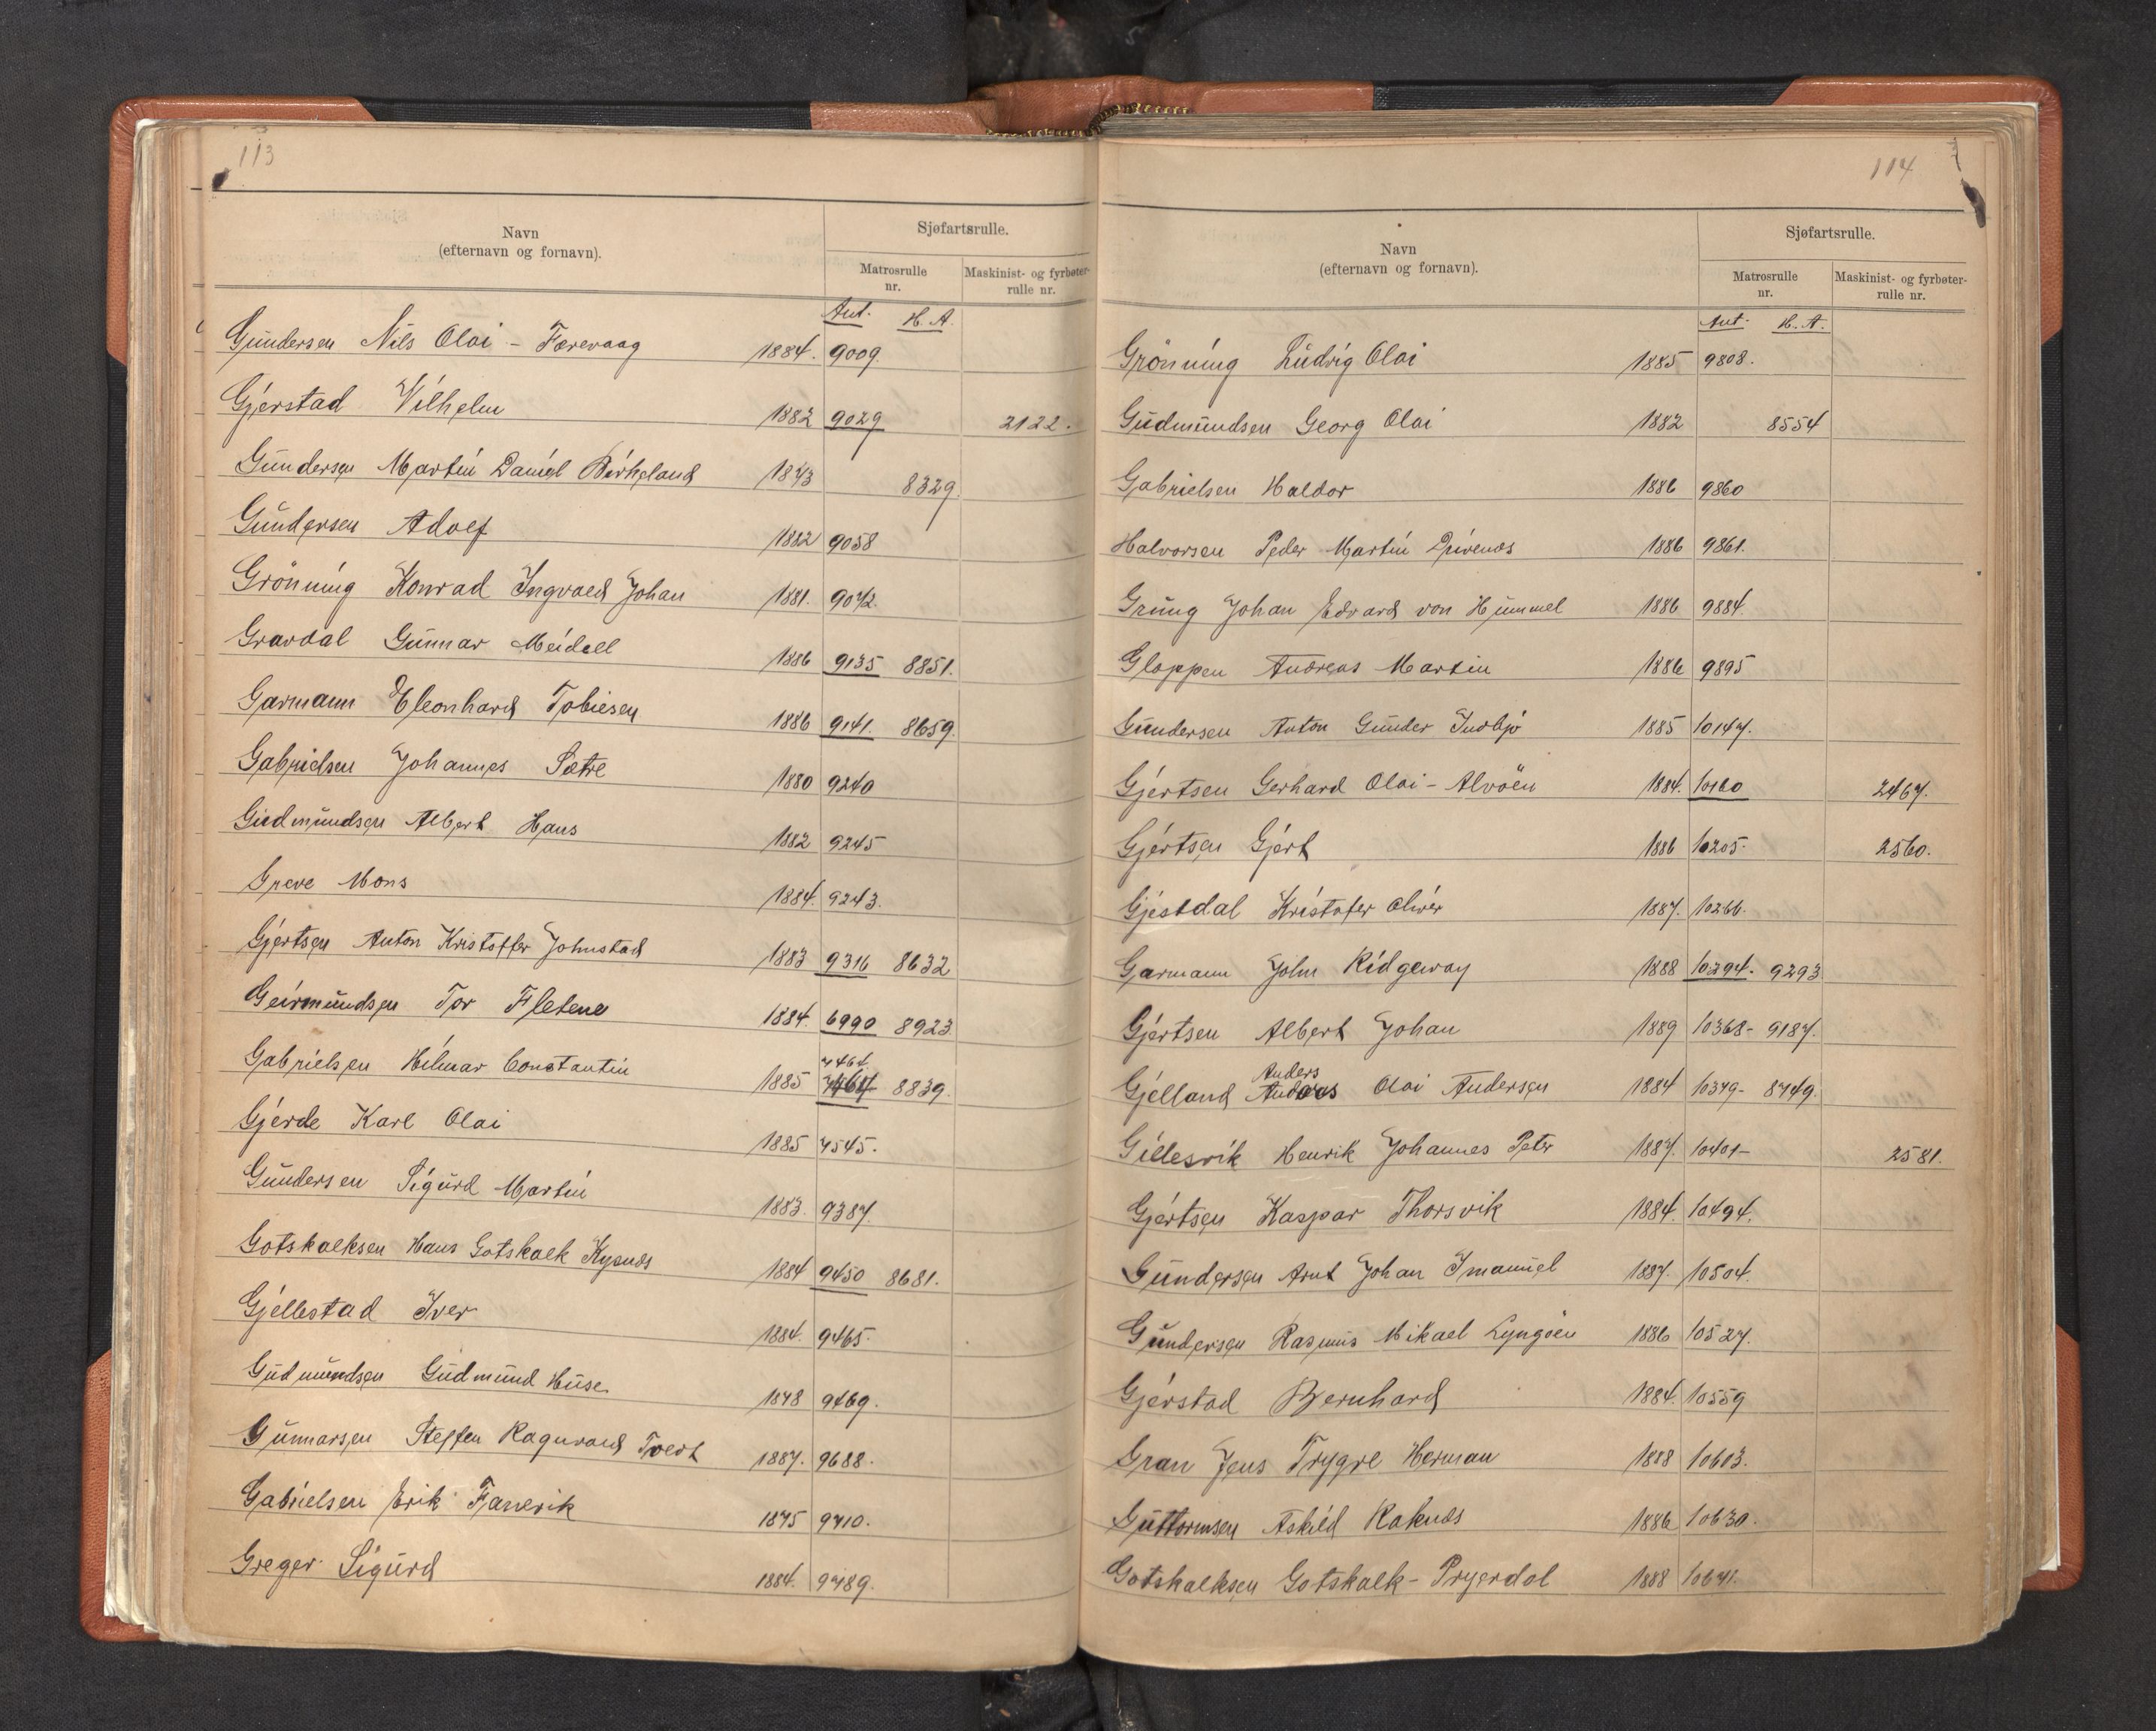 113
Navn
(efternavn og fornavn).
Sjøfartsrulle.
Matrosrulle
nr.
Maskinist- og fyrbøter-
rulle nr.
Ant. H. A.
Gundersen Nils Olai - Færevaag 1884. 9009.
Gjerstad Vilhelm 1882 9029 2122.
Gundersen Martin Daniel Birkeland 1873 8329.
Gundersen Adolf 1882 9058
Grönning Konrad Ingvald Johan 1881. 9072.
Gravdal Gunnar Meidell 1886 9135 8851.
Garmann Eleonhard Tobiesen 1886 9141. 8659.
Gabrielsen Johannes Sætre 1880 9240
Gudmundsen Albert Hans 1882 9245
Greve Mons 1884. 9243.
Gjertsen Anton Kristoffer Johnstad 1883 9316 8632
Geirmundsen Tor Fletene 1884. 6990 8923
Gabrielsen Hilmar Constantin 1885 7467 8839.
Gjerde Karl Olai 1885 7545.
Gundersen Sigurd Martin 1883. 9387.
Gotskalksen Hans Gotskalk Kysnes 1884 9450 8681.
Gjellestad Iver 1884. 9465.
Gudmundsen Gudmund Huse 1878 9469.
Gunnarsen Steffen Ragnvald Tvedt 1887. 9688.
Gabrielsen Erik Fanevik 1875 9710.
Greger Sigurd 1884. 9789.
114
Navn
(efternavn og fornavn).
Sjøfartsrulle.
Matrosrulle
nr.
Maskinist- og fyrbøter-
rulle nr.
Ant. H. A.
Grönning Ludvig Olai 1885 9808.
Gudmundsen Georg Olai 1882 8554
Gabrielsen Haldor 1886 9860
Halvorsen Peder Martin 1886 9861.
Grung Johan Edvard von Hummel 1886 9884.
Gloppen Andreas Martin 1886 9895
Gundersen Anton Gunder Indbjo 1885 10147.
Gjertsen Gerhard Olai - Alvöen 1884. 10180 2467.
Gjertsen Gjert 1886 10205- 2560.
Gjestdal Kristofer Oliver 1887. 10266.
Garmann John Ridgeway 1888 10294. 9293
Gjertsen Albert Johan 1889 10368- 9187.
Anders
Gjelland Andreas Olai Andersen 1884 10379- 8749.
Gillesvik Henrik Johannes Peter 1887. 10401- 2581.
Gjertsen Kaspar Thorsvik 1884. 10494.
Gundersen Arnt Johan Imanuel 1887. 10504.
Gundersen Rasmus Mikael Lyngöen 1886 10527.
Gjerstad Bernhard 1884. 10559
Gran Jens Trygve Herman 1888 10603.
Guttormsen Askild Raknes 1886 10630.
Gotskalksen Gotskalk - Fryerdal 1888 10641.